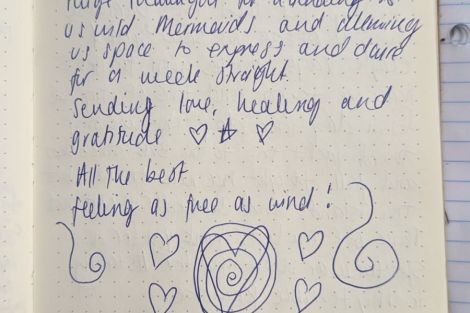 us wild Mermaids and allowing
us space to express and dance
for a week straight.
Sending love, healing and
gratitude ♡ ☆ ♡
All the best
feeling as free as wind!